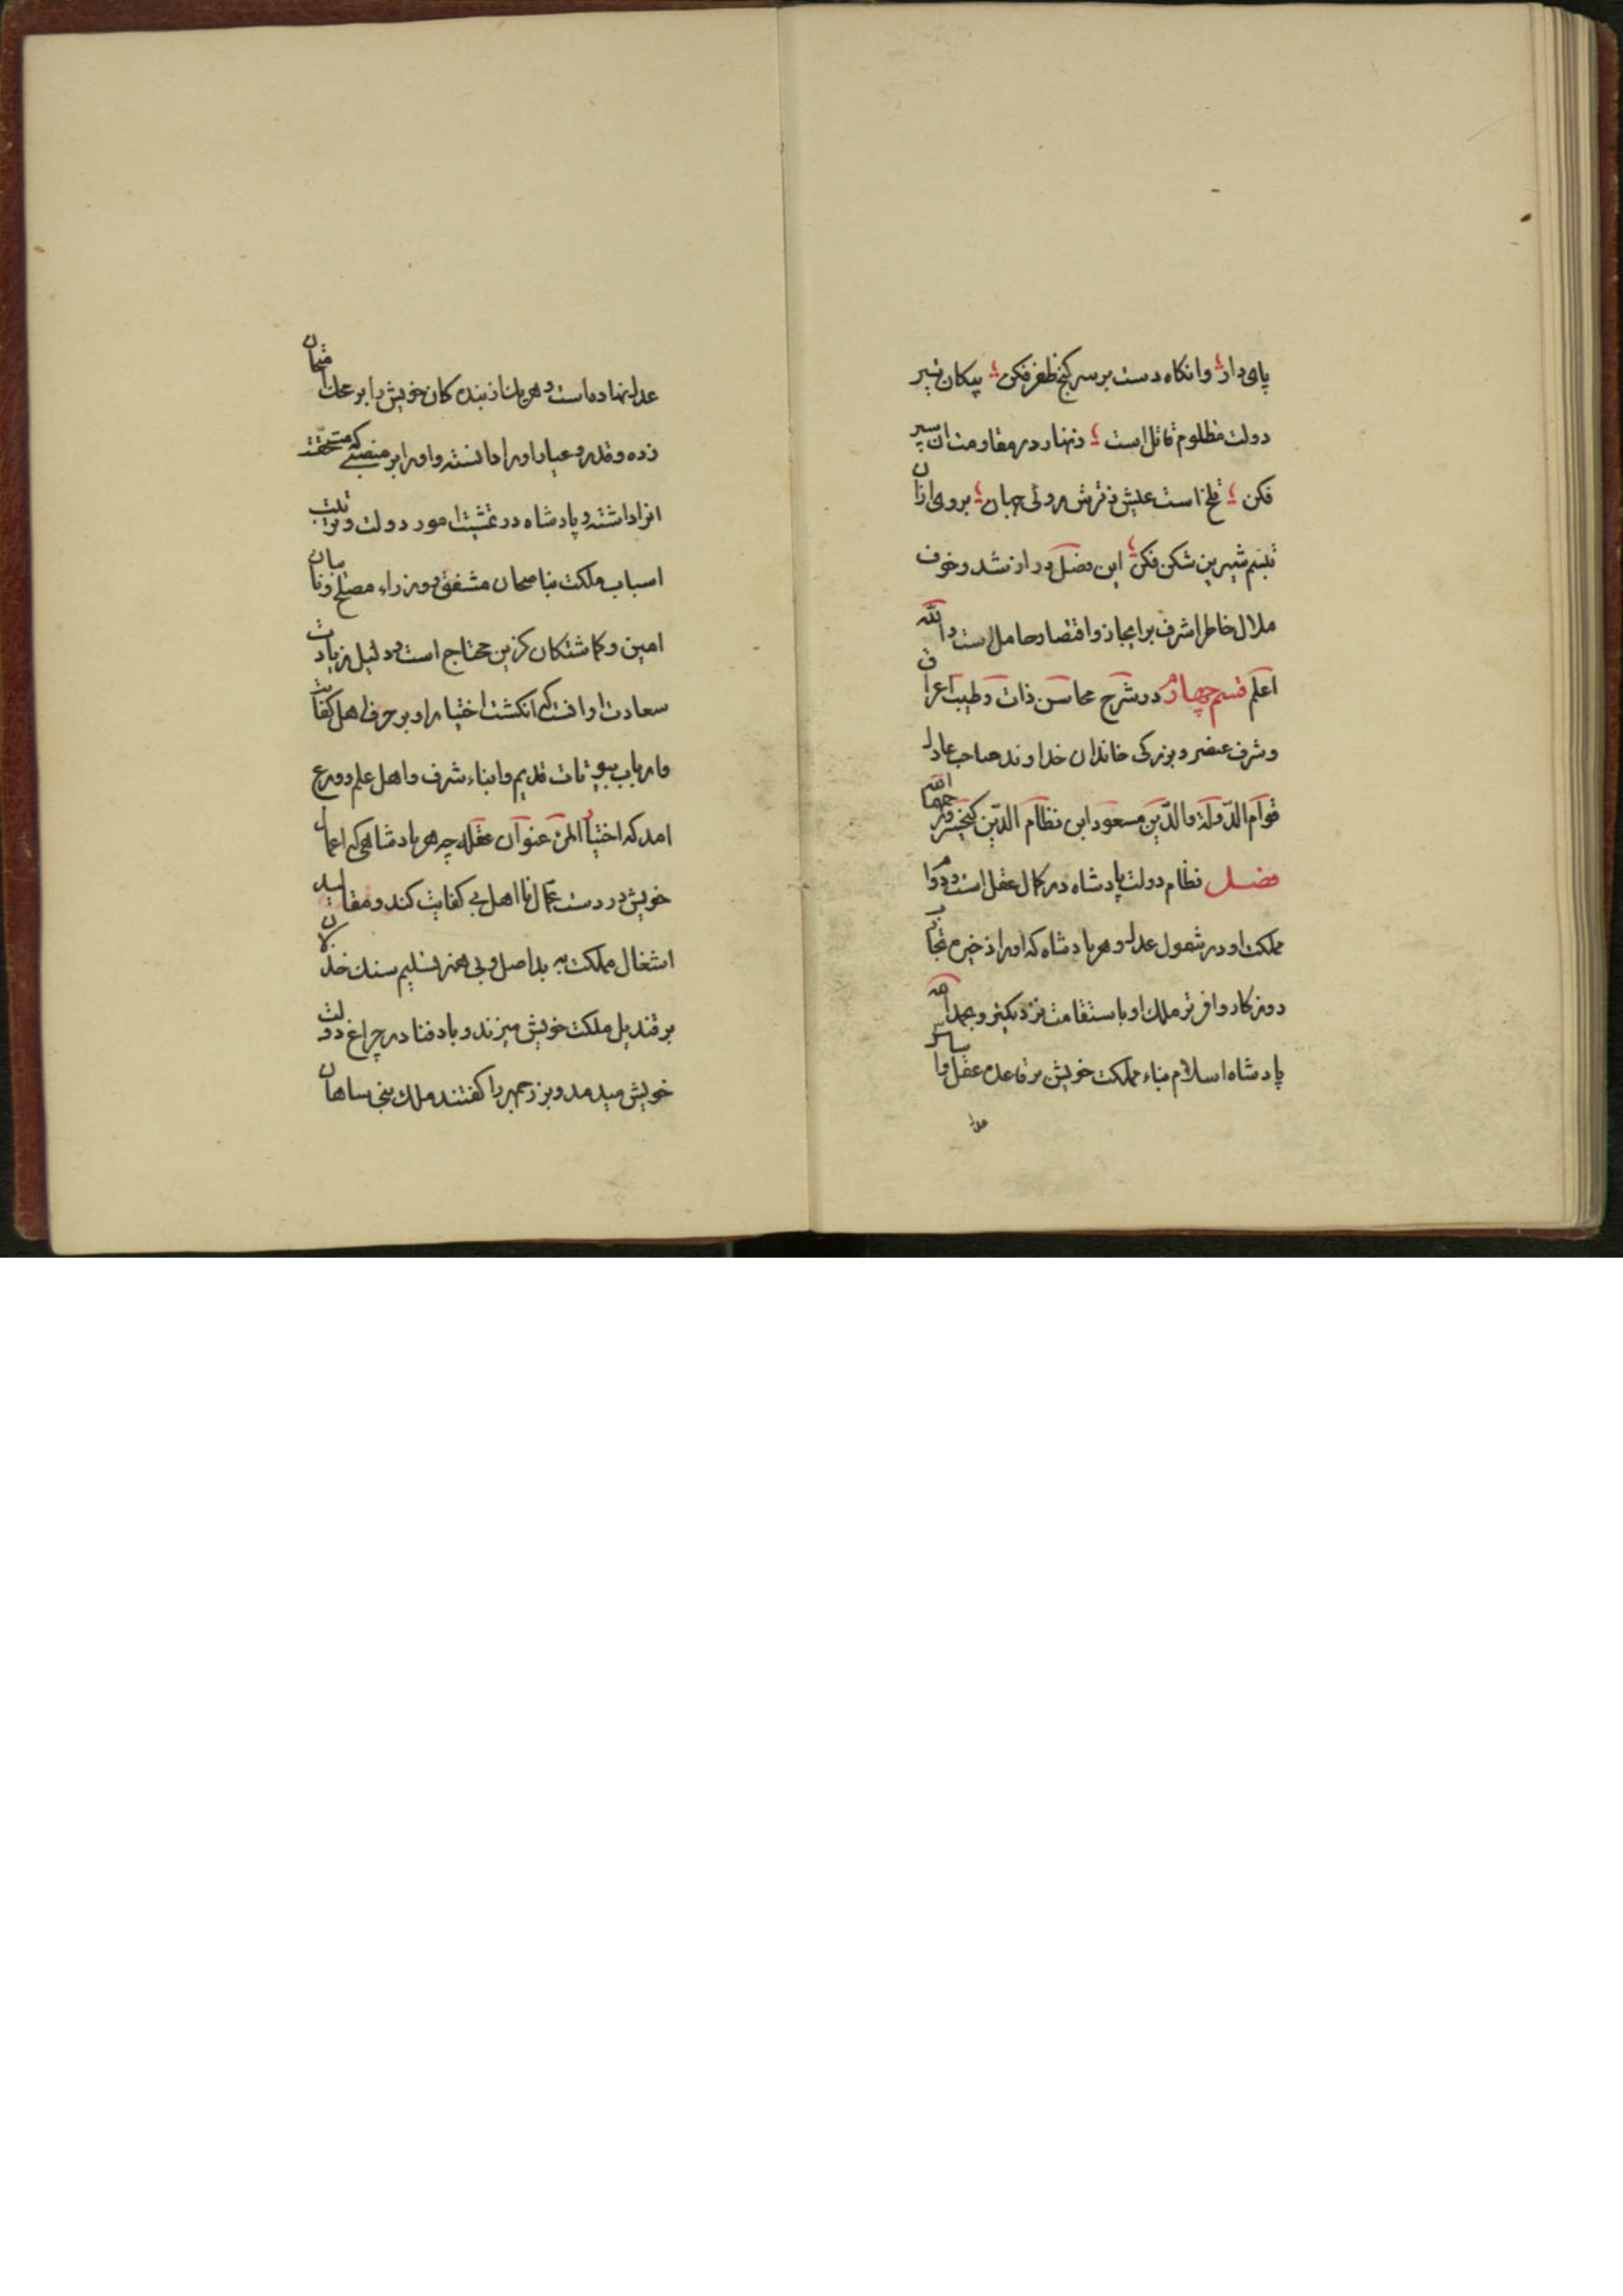 پای دار ؛ وانکاه دست بر سر کنج ظفر فکن ؛ پیکان تیر
دولت مظلوم قاتل است ؛ زنهار در مقاومت ان سپر
فکن ؛ تلخ است عیش ز ترش روئی جهان ؛ بروی ازان
تبسم شیرین شکن فکن ؛ این فصل دراز شد و خوف
ملال خاطر اشرف بر ایجاز و اقتصار حامل است والله
اعلم قسم چهارم در شرح محاسن ذات و طیب اعراق
و شرف عنصر و بزرکی خاندان خداوند صاحب عادل
قوام الدولة والدین مسعود ابن نظام الدین کیخسرو رحمهما الله
فصل نظام دولت پادشاه در کمال عقل است و دوام
مملکت او در شمول عدل و هر پادشاه که اورا ذخیره تجارب
روزکار وافرتر ملک او باستقامت نزدیکتر و بحمد الله
پادشاه اسلام بناء مملکت خویش بر قاعده عقل و اساس
عدل
عدل نهاده است و هر یک از بنده کان خویش را بر محک امتحان
زده و قدر و عیار اورا دانسته و اورا بر منصبی که مستحقّ
انرا داشته و پادشاه در تمشیت امور دولت و ترتیب
اسباب مملکت بناصحان مشفق و وزراء مصلح و نایبان
امین و کماشتکان کزین محتاج است و دلیل زیادت
سعادت او انست که انکشت اختیار او بر حرف اهل کفایت
وارباب بیوتات قدیم و ابناء شرف و اهل علم و ورع
امد که اختیار المرء عنوان عقله چه هر پادشاهی که اعمال
خویش در دست عمال نا اهل بی کفایت کند و مقالید
اشغال مملکت به بداصل و بی هنر تسلیم سنک خذلان
بر قندیل مملکت خویش میزند و باد فنا در چراغ دولت
خویش میدمد و بزرجمهر را کفتند ملک بنی ساسان